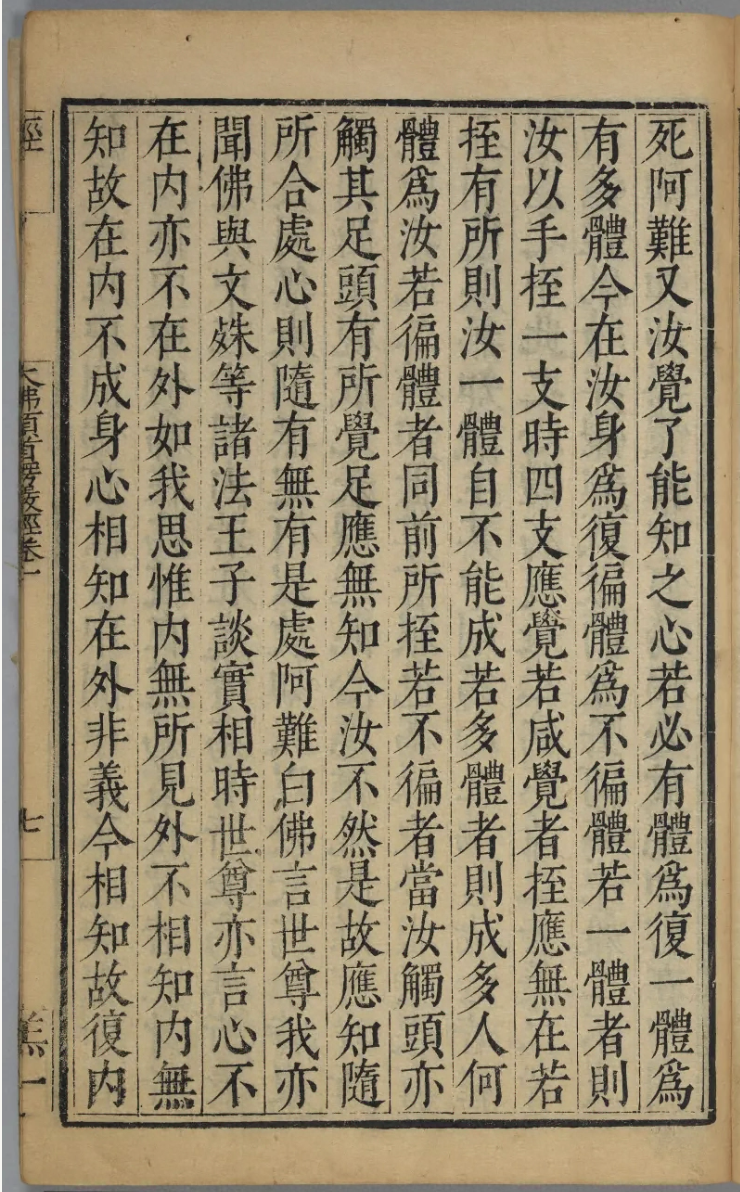 死阿難又汝覺了能知之心若必有體爲復一體爲
有多體今在汝身爲復徧體爲不徧體若一體者則
汝以手挃一支時四支應覺若咸覺者挃應無在若
挃有所則汝一體自不能成若多體者則成多人何
體爲汝若徧體者同前所挃若不徧者當汝觸頭亦
觸其足頭有所覺足應無知今汝不然是故應知隨
所合處心則隨有無有是處阿難白佛言世尊我亦
聞佛與文殊等諸法王子談實相時世尊亦言心不
在内亦不在外如我思惟内無所見外不相知内無
知故在内不成身心相知在外非義今相知故復内
經
大佛頂首楞嚴經卷一
七
羔一